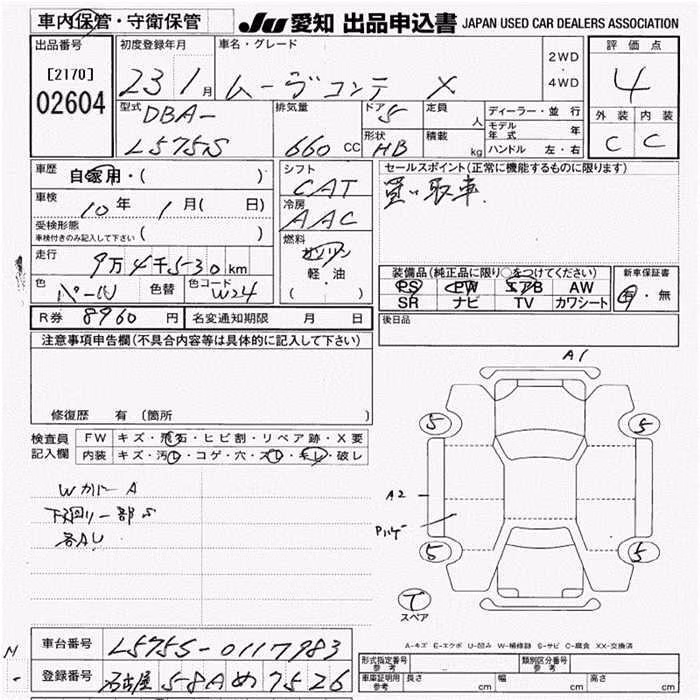 車内保管・守衛保管
JU 愛知 出品申込書 JAPAN USED CAR DEALERS ASSOCIATION
出品番号
[2170]
02604
初度登録年月
23 1月
車名・グレード
ムーヴコンテ X
2WD
・
4WD
評価点
4
外装 内装
C C
型式
DBA-
L575S
排気量
660 CC
ドア 5
形状
HB
定員
人
積載
kg
ディーラー・並行
モデル年式 年
ハンドル 左・右
車歴
自家用・( )
車検
10年 1月( 日)
受検形態
車検付きのみ記入して下さい ( )
走行
9万4千530km
色
パール
色替
色コード
W24
シフト
CAT
冷房
AAC
燃料
ガソリン
軽・油
( )
セールスポイント(正常に機能するものに限ります)
買い取車
装備品(純正品に限り○をつけてください)
PS PW エアB AW
SR ナビ TV カワシート
新車保証書
有・無
R券 8960 円
名変通知期限 月 日
後日品
注意事項申告欄(不具合内容等は具体的に記入して下さい)
修復歴 有 (箇所 )
検査員
記入欄
FW キズ・飛石・ヒビ割・リペア跡・X要
内装 キズ・汚レ・コゲ・穴・スレ・キレ・破レ
Wカバー A
下廻り一部S
各AU
A1
5 5
A2
5 5
テ
スペア
A-キズ E-エクボ U-凹み W-補修跡 S-サビ C-腐食 XX-交換済
車台番号
L575S-0117983
登録番号
名古屋 58A め 7526
型式指定番号
参考
類別区分番号
参考
車庫証明用
参考
長さ cm 幅 cm 高さ cm